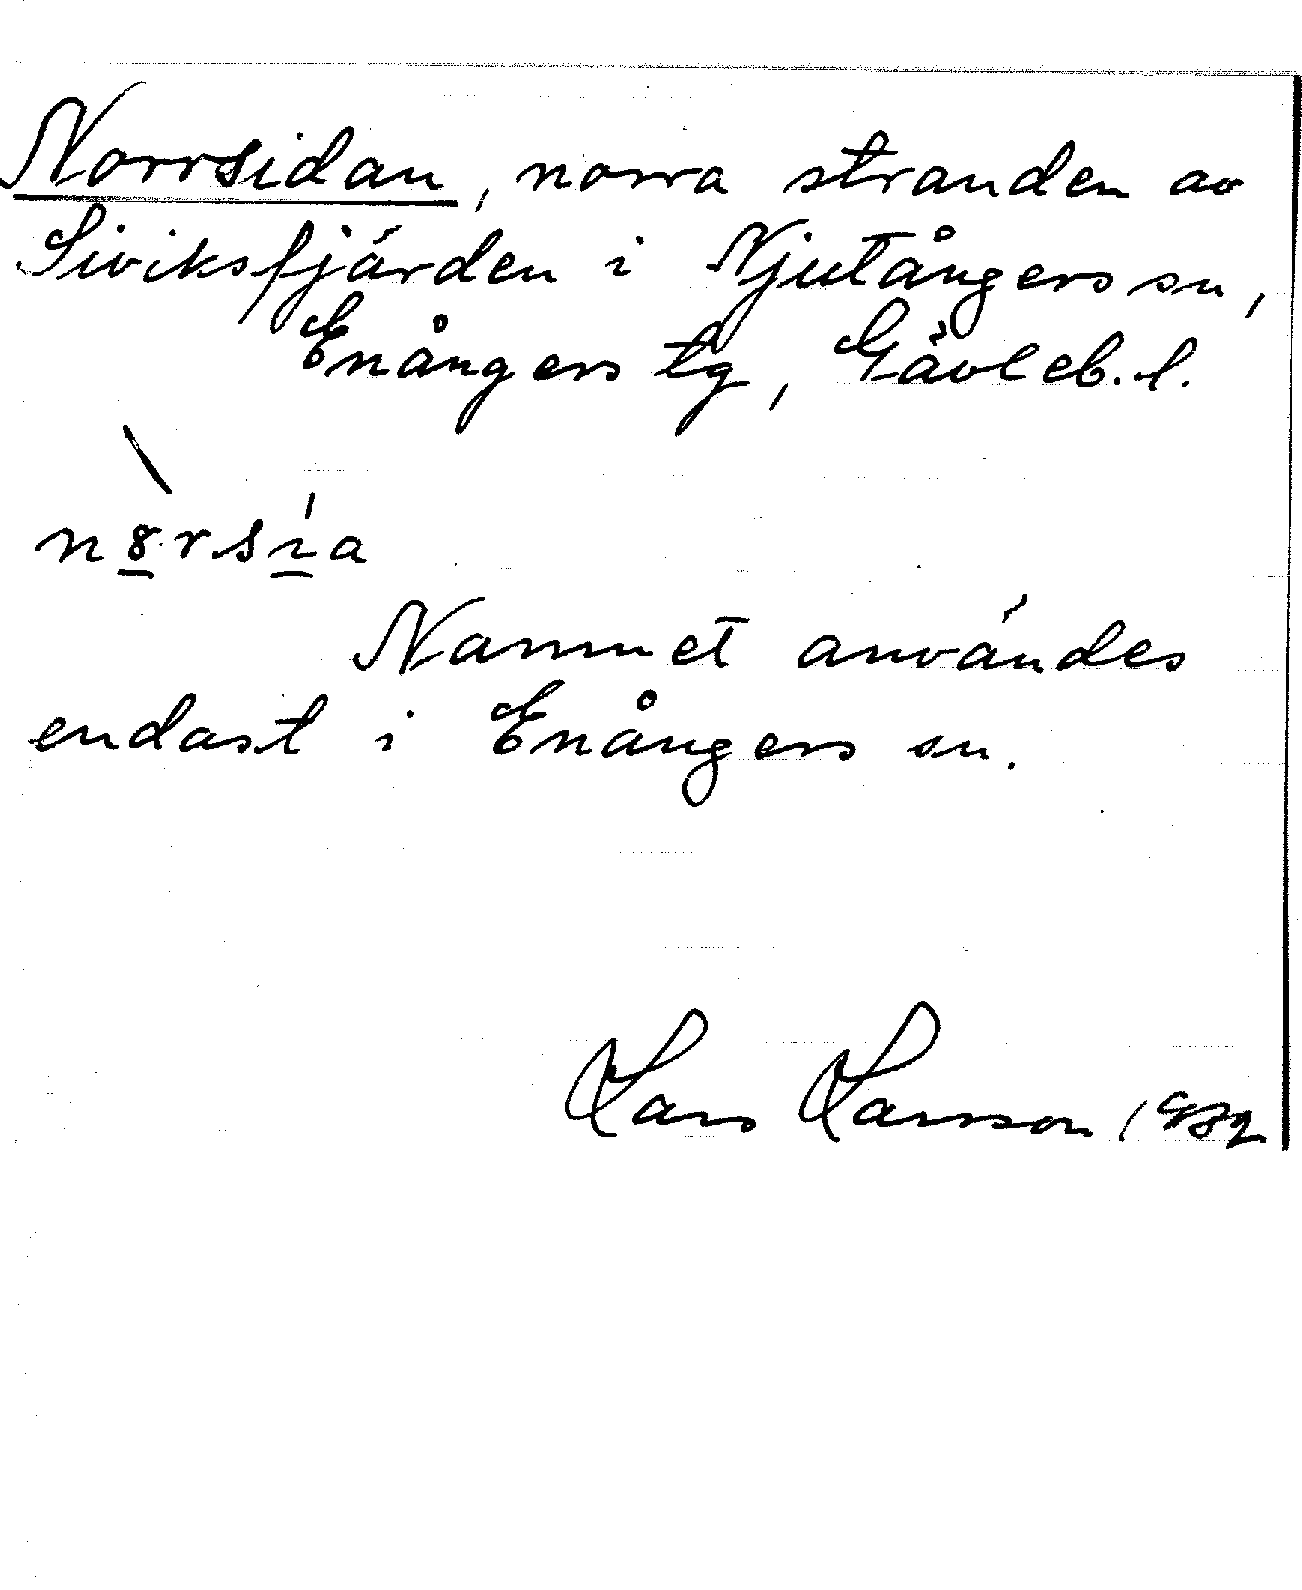 Norrsidan, norra stranden av
Siviksfjärden i Njutångers sn,
Enångers tg, Gävleb. l.
n8rsia
Namnet användes
endast i Enångers sn.
Lars Larsson